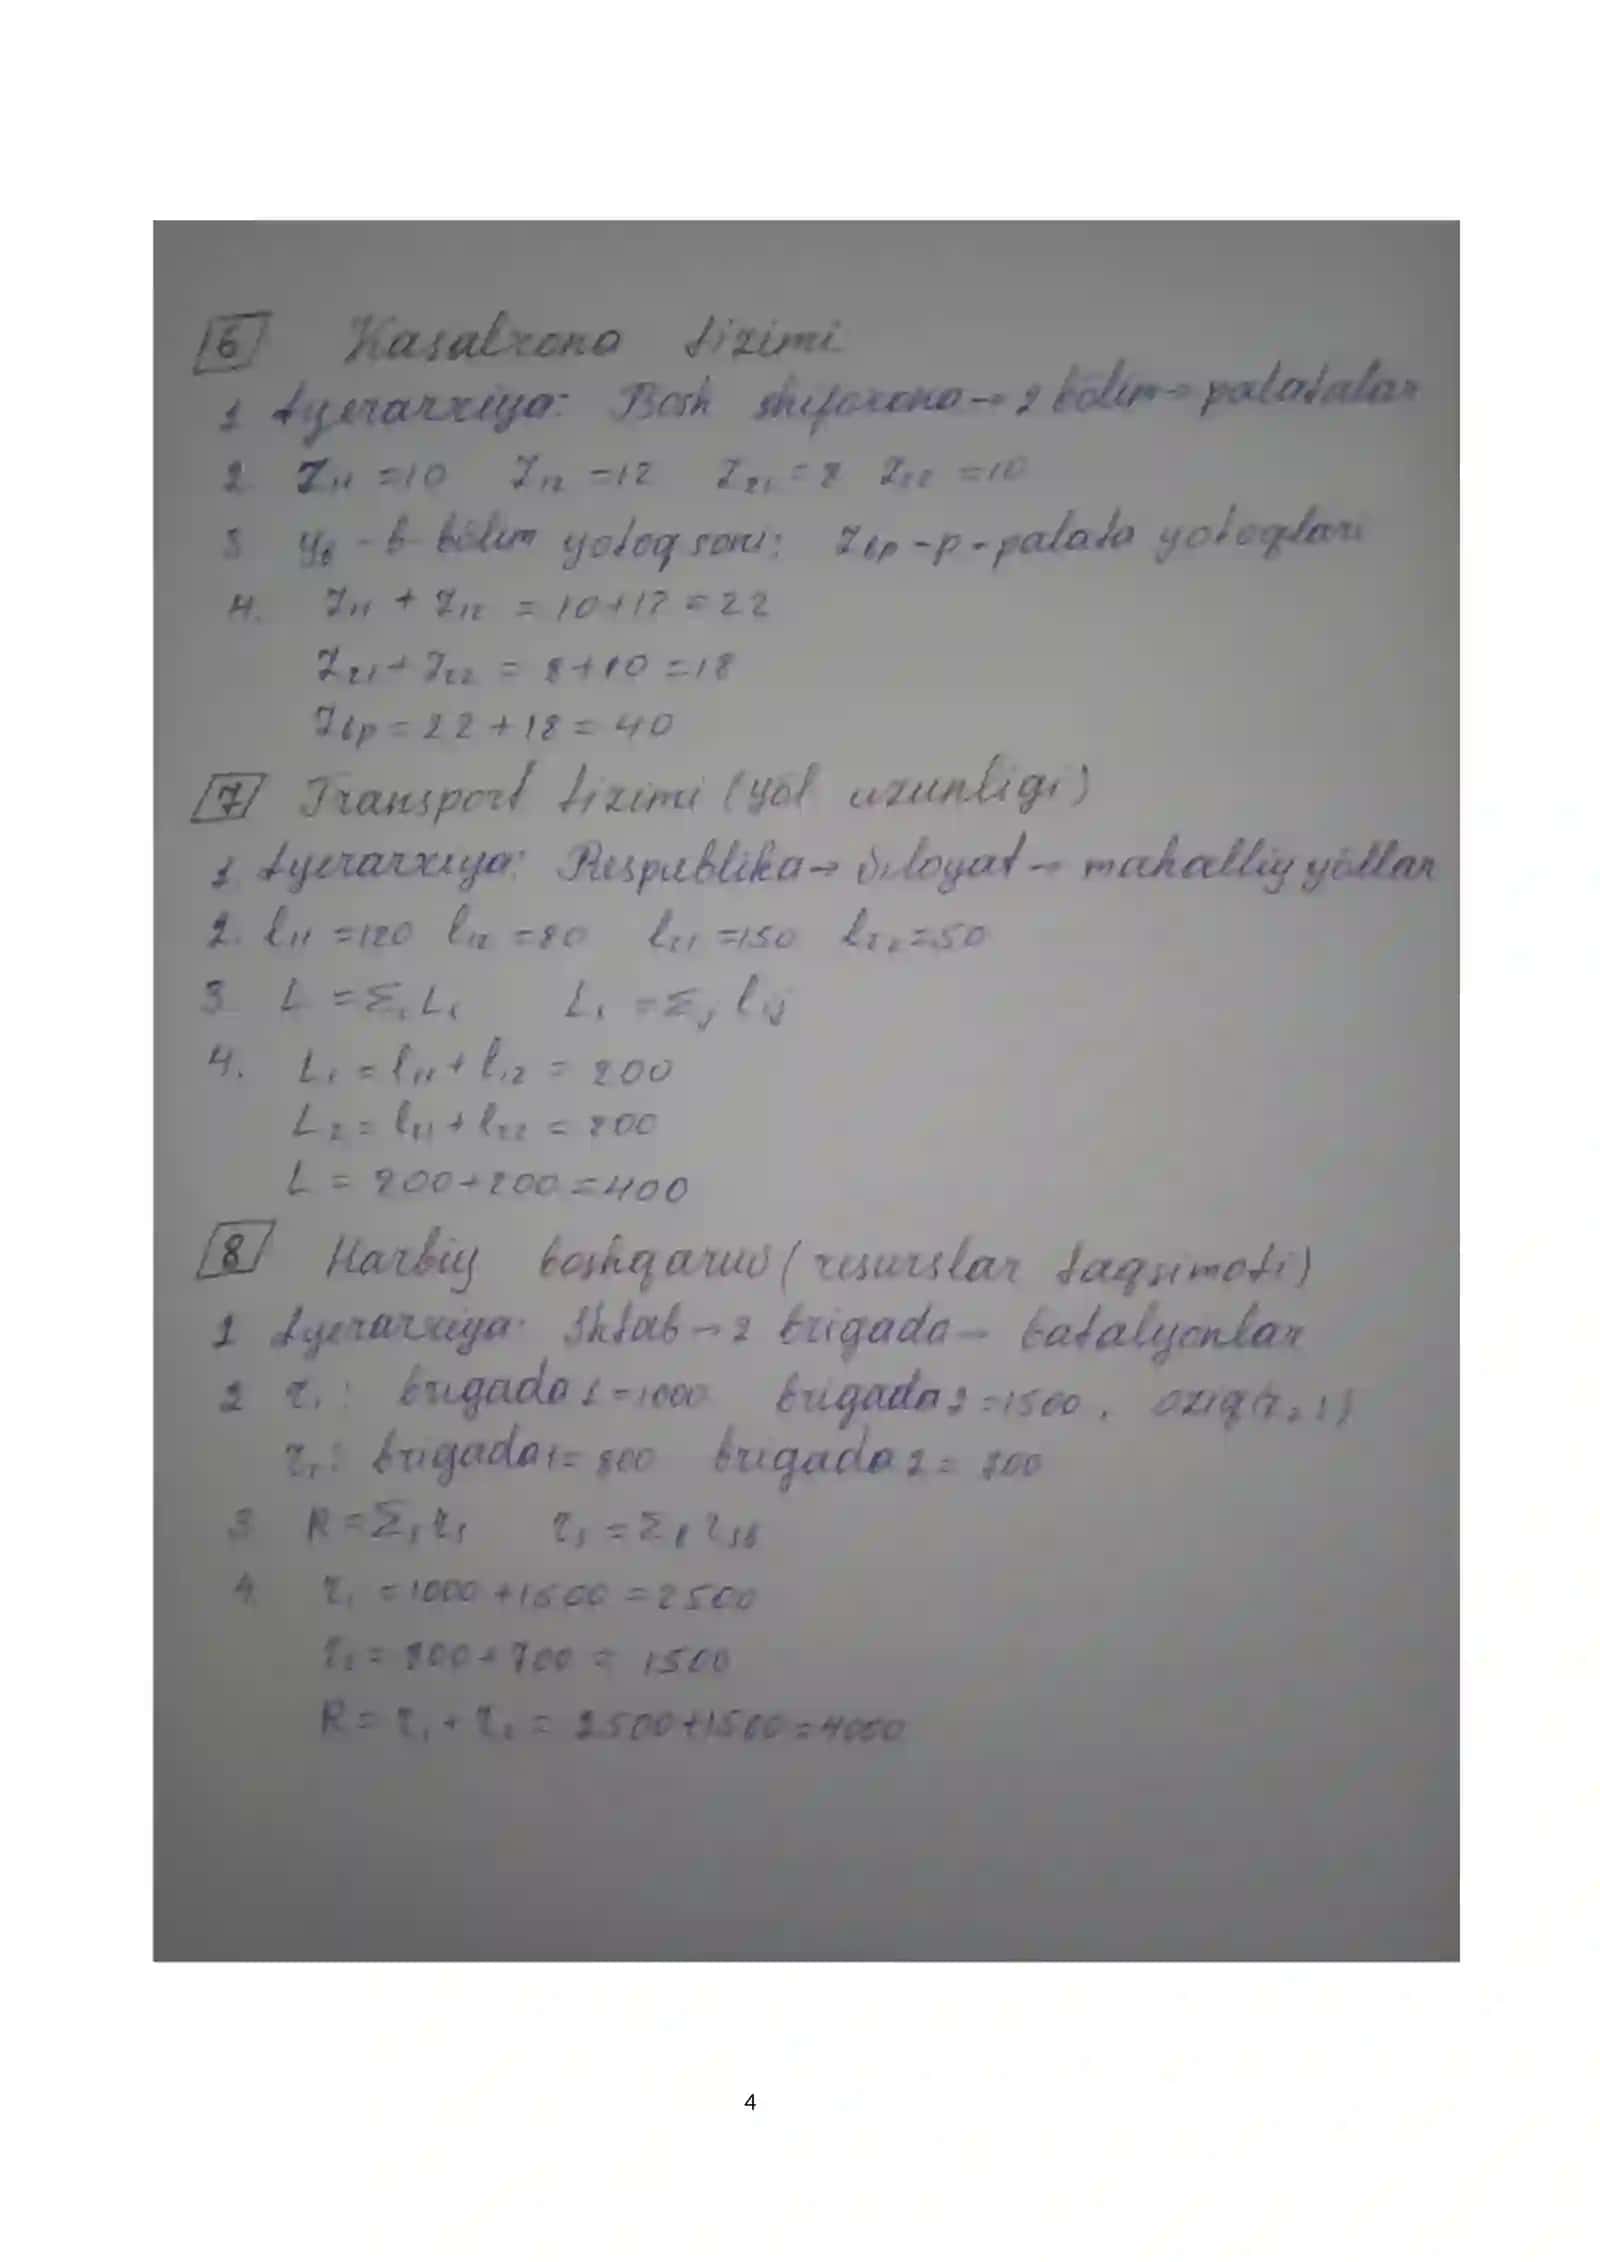 6 Kasalxona tizimi
1 Iyerarxiya: Bosh shifoxona → 2 bõlim → palatalar
2. Z₁₁ = 10 Z₁₂ = 12 Z₂₁ = 8 Z₂₂ = 10
3 Yb - b- bõlim yotoq soni; Zbp - p - palata yotoqlari
4. Z₁₁ + Z₁₂ = 10+12 = 22
Z₂₁ + Z₂₂ = 8+10 = 18
Zbp = 22 + 18 = 40
7 Transport tizimi (yõl uzunligi)
1 Iyerarxiya: Respublika → viloyat → mahalliy yõllar
2. l₁₁ = 120 l₁₂ = 80 l₂₁ = 150 l₂₂ = 50
3 L = Σᵢ Lᵢ Lᵢ = Σⱼ lᵢⱼ
4. L₁ = l₁₁ + l₁₂ = 200
L₂ = l₂₁ + l₂₂ = 200
L = 200 + 200 = 400
8 Harbiy boshqaruv (resurslar taqsimoti)
1 Iyerarxiya: Shtab → 2 brigada → batalyonlar
2 r₁: brigada 1 = 1000 brigada 2 = 1500, oziq
r₂: brigada 1 = 800 brigada 2 = 700
3 R = Σ
4. r₁ = 1000 + 1500 = 2500
r₂ = 800 + 700 = 1500
R = r₁ + r₂ = 2500 + 1500 = 4000
4